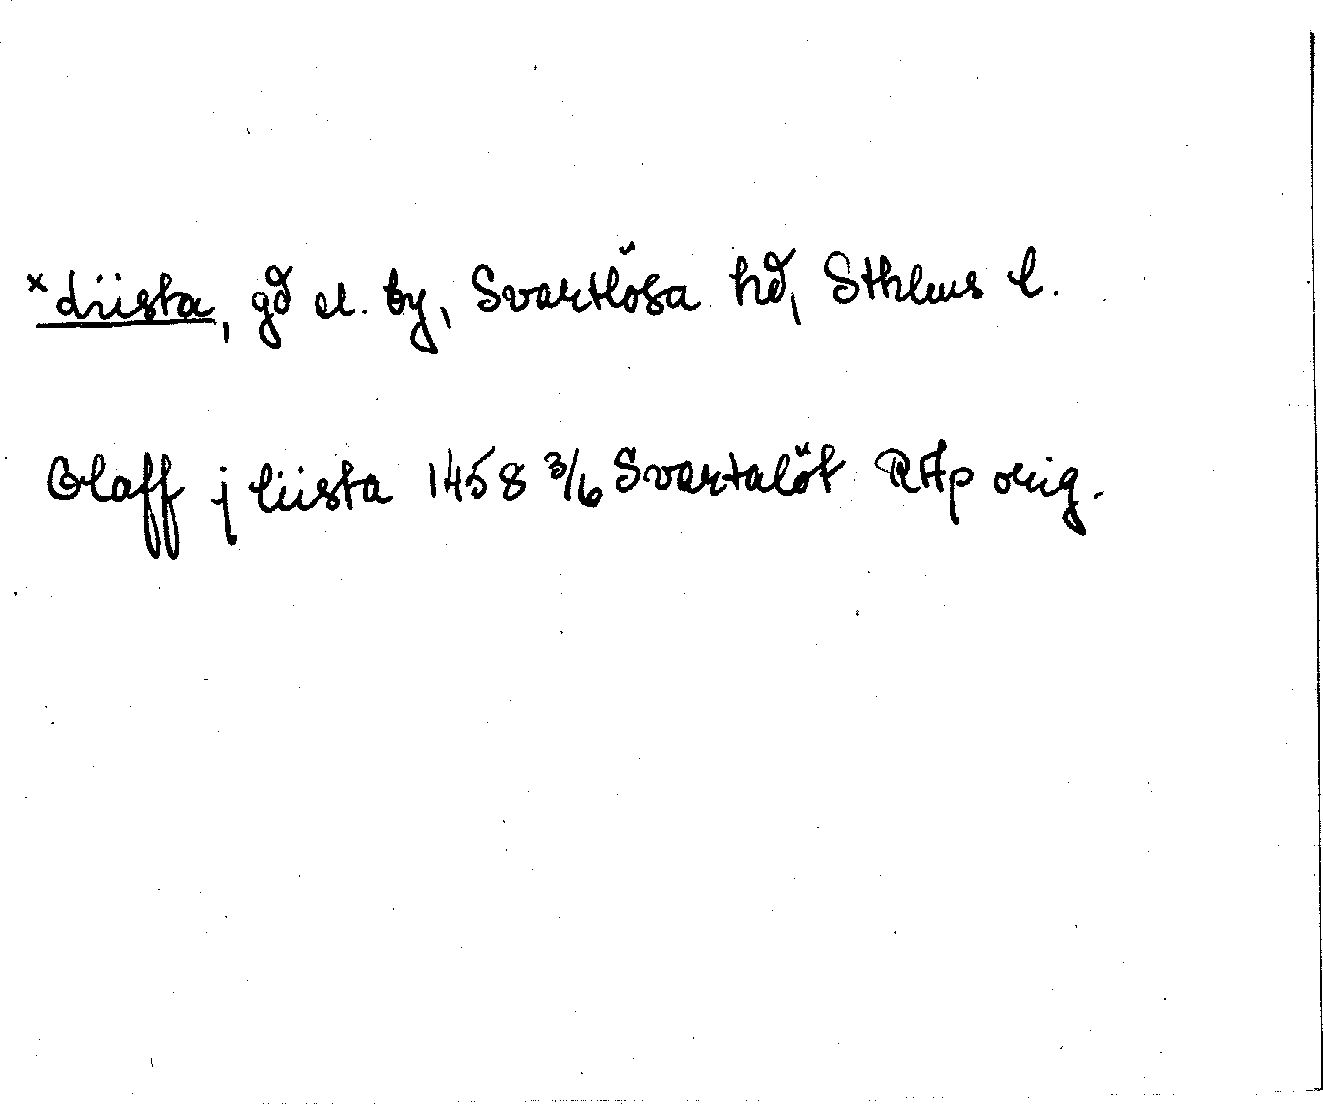 × Liista, gd el. by, Svartlösa hd, Sthlms l.
Olaff j liista 1458 3/6 Svartalöt RAp orig.